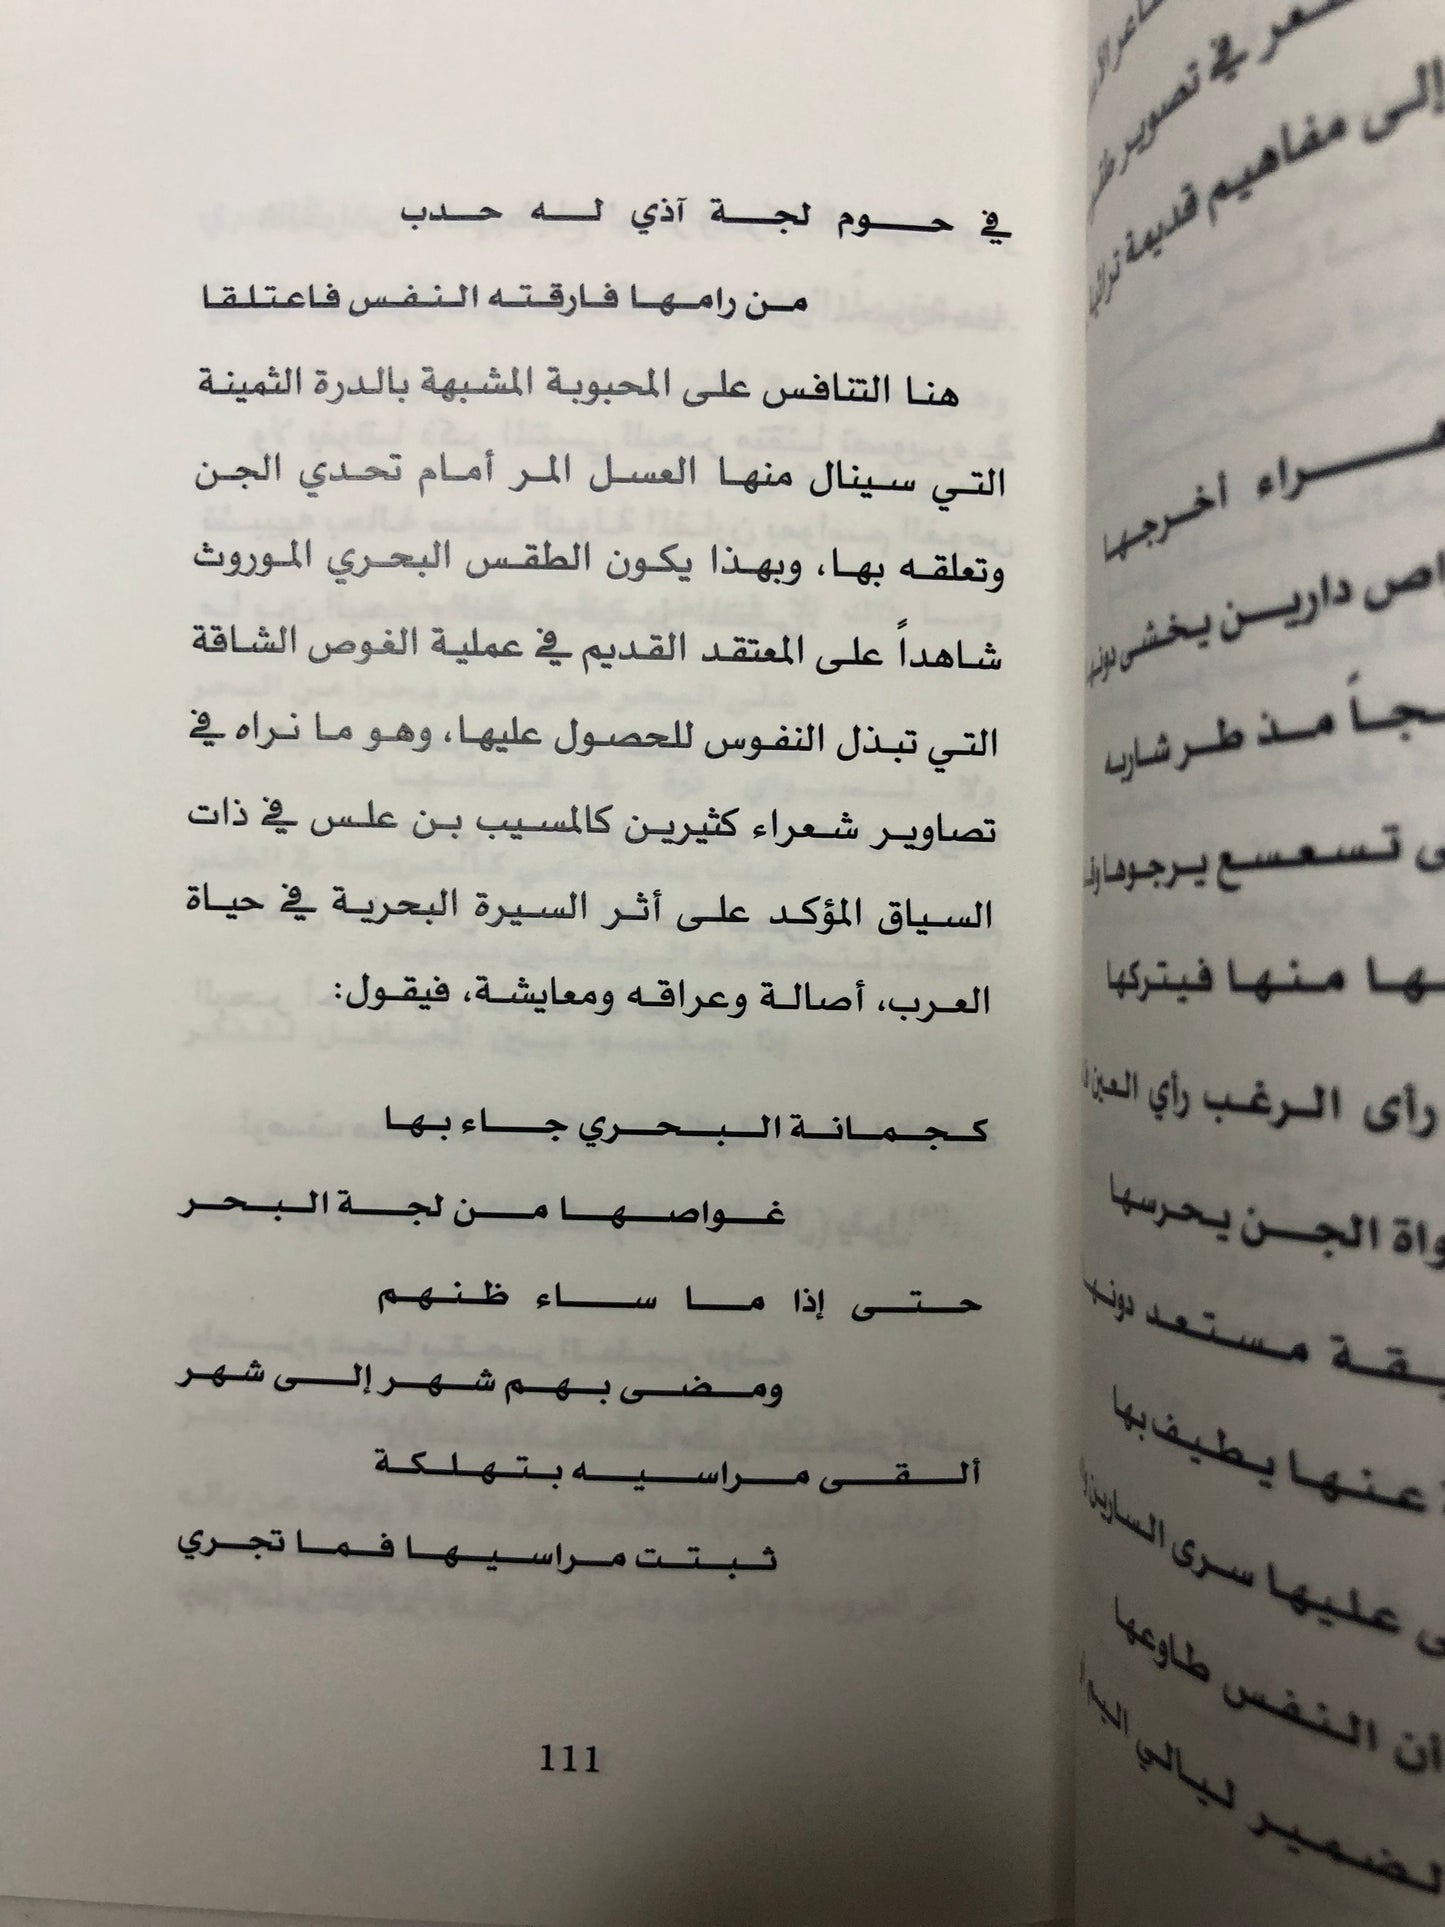 في حوم لجة آذي له حدب
من رامها فارقته النفس فاعتلقا
هنا التنافس على المحبوبة المشبهة بالدرة الثمينة
التي سينال منها العسل المر أمام تحدي الجن
وتعلقه بها، وبهذا يكون الطقس البحري الموروث
شاهداً على المعتقد القديم في عملية الغوص الشاقة
التي تبذل النفوس للحصول عليها، وهو ما نراه في
تصاوير شعراء كثيرين كالمسيب بن علس في ذات
السياق المؤكد على أثر السيرة البحرية في حياة
العرب، أصالة وعراقه ومعايشة، فيقول:
كجمانة البحري جاء بها
غواصها من لجة البحر
حتى إذا ما ساء ظنهم
ومضى بهم شهر إلى شهر
ألقى مراسيه بتهلكة
ثبتت مراسيها فما تجري
111
في تصوير
إلى مفاهيم قديمة
أخرجها
دارين يخشى دونها
مذ طر شاربه
تسعسع يرجوها
منها فيتركها
رأى الرغب رأي العين
الجن يحرسها
مستعد دونها
عنها يطيف بها
عليها سرى السارين
أن النفس طاوعها
ليالي اليم